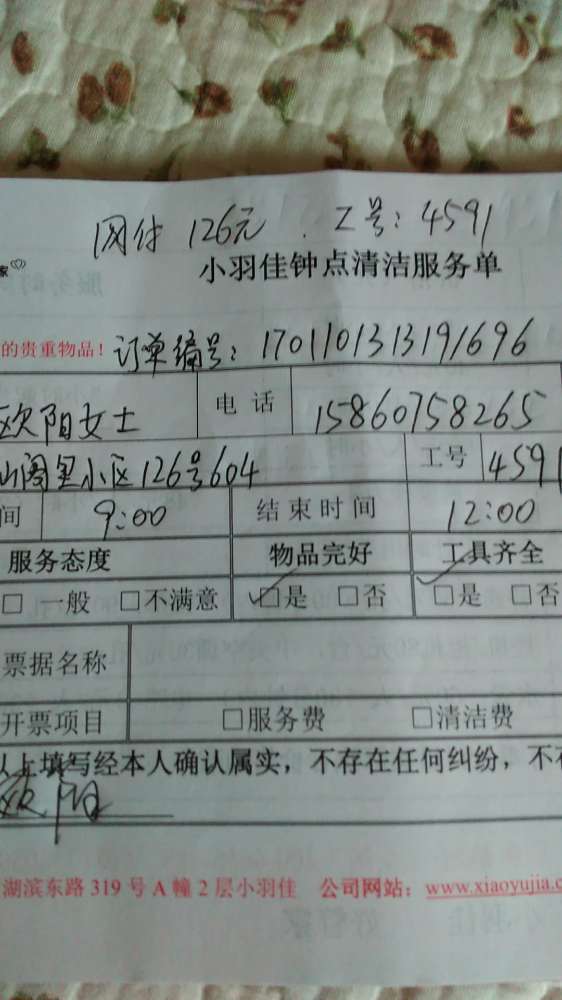 网付 126元. 工号：4591
家
小羽佳钟点清洁服务单
的贵重物品！订单编号：170110131319​1696
欧阳女士 电话 15860758265
山阁里小区126号604 工号 4591
间 9:00 结束时间 12:00
服务态度 物品完好 工具齐全
□ 一般 □不满意 □是 □否 □是 □否
票据名称
开票项目 □服务费 □清洁费
以上填写经本人确认属实，不存在任何纠纷，不
欧阳
湖滨东路 319 号 A 幢 2 层小羽佳 公司网站：www.xiaoyujia.c